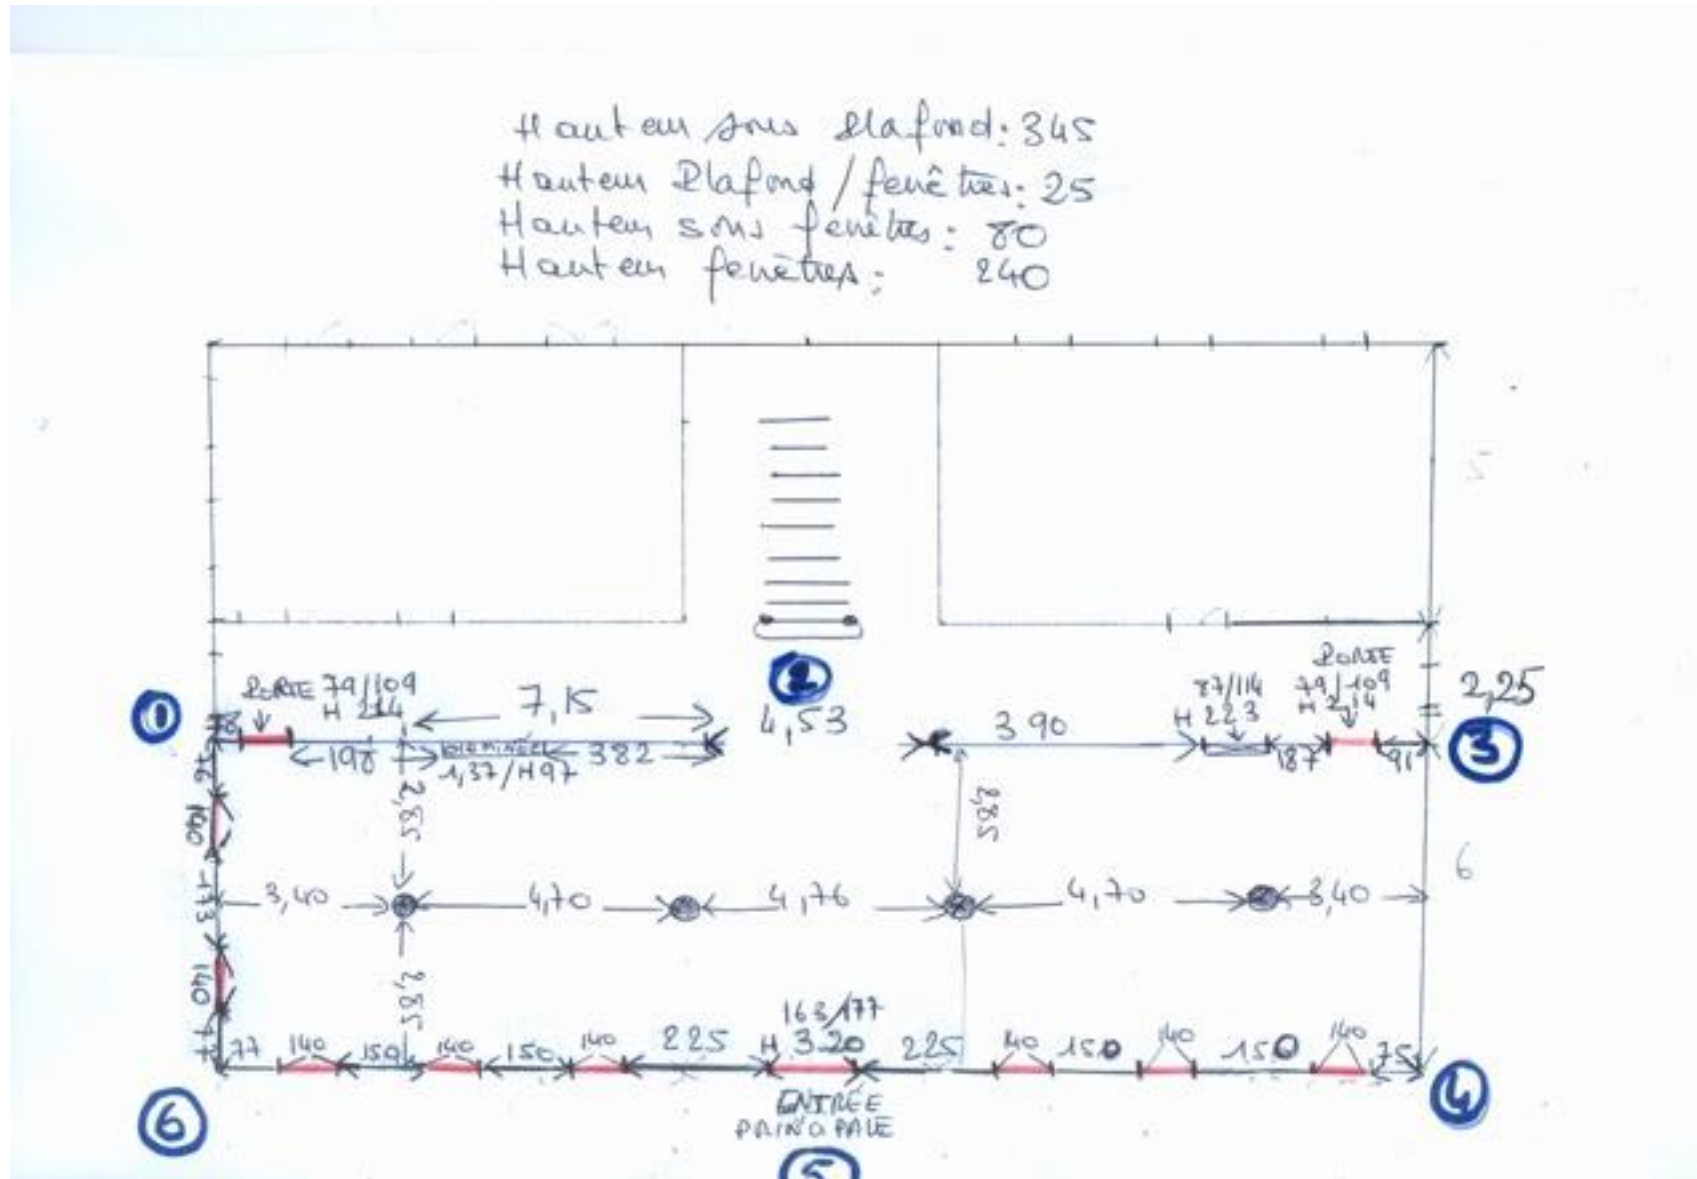 Hauteur sous Plafond: 345
Hauteur Plafond / fenêtres: 25
Hauteur sous fenêtres: 80
Hauteur fenêtres: 240
2
1
PORTE 79/109
H 214
7,15
4,53
3 90
87/114
H 223
PORTE
79/109
H 214
2,25
3
198
1,37/H97
382
187
91
140
173
140
77
2,85
2,85
2,85
6
3,40
4,70
4,76
4,70
3,40
77
140
150
140
150
140
225
163/177
H 3.20
225
40
150
140
150
140
75
ENTRÉE
PRINCIPALE
6
5
4